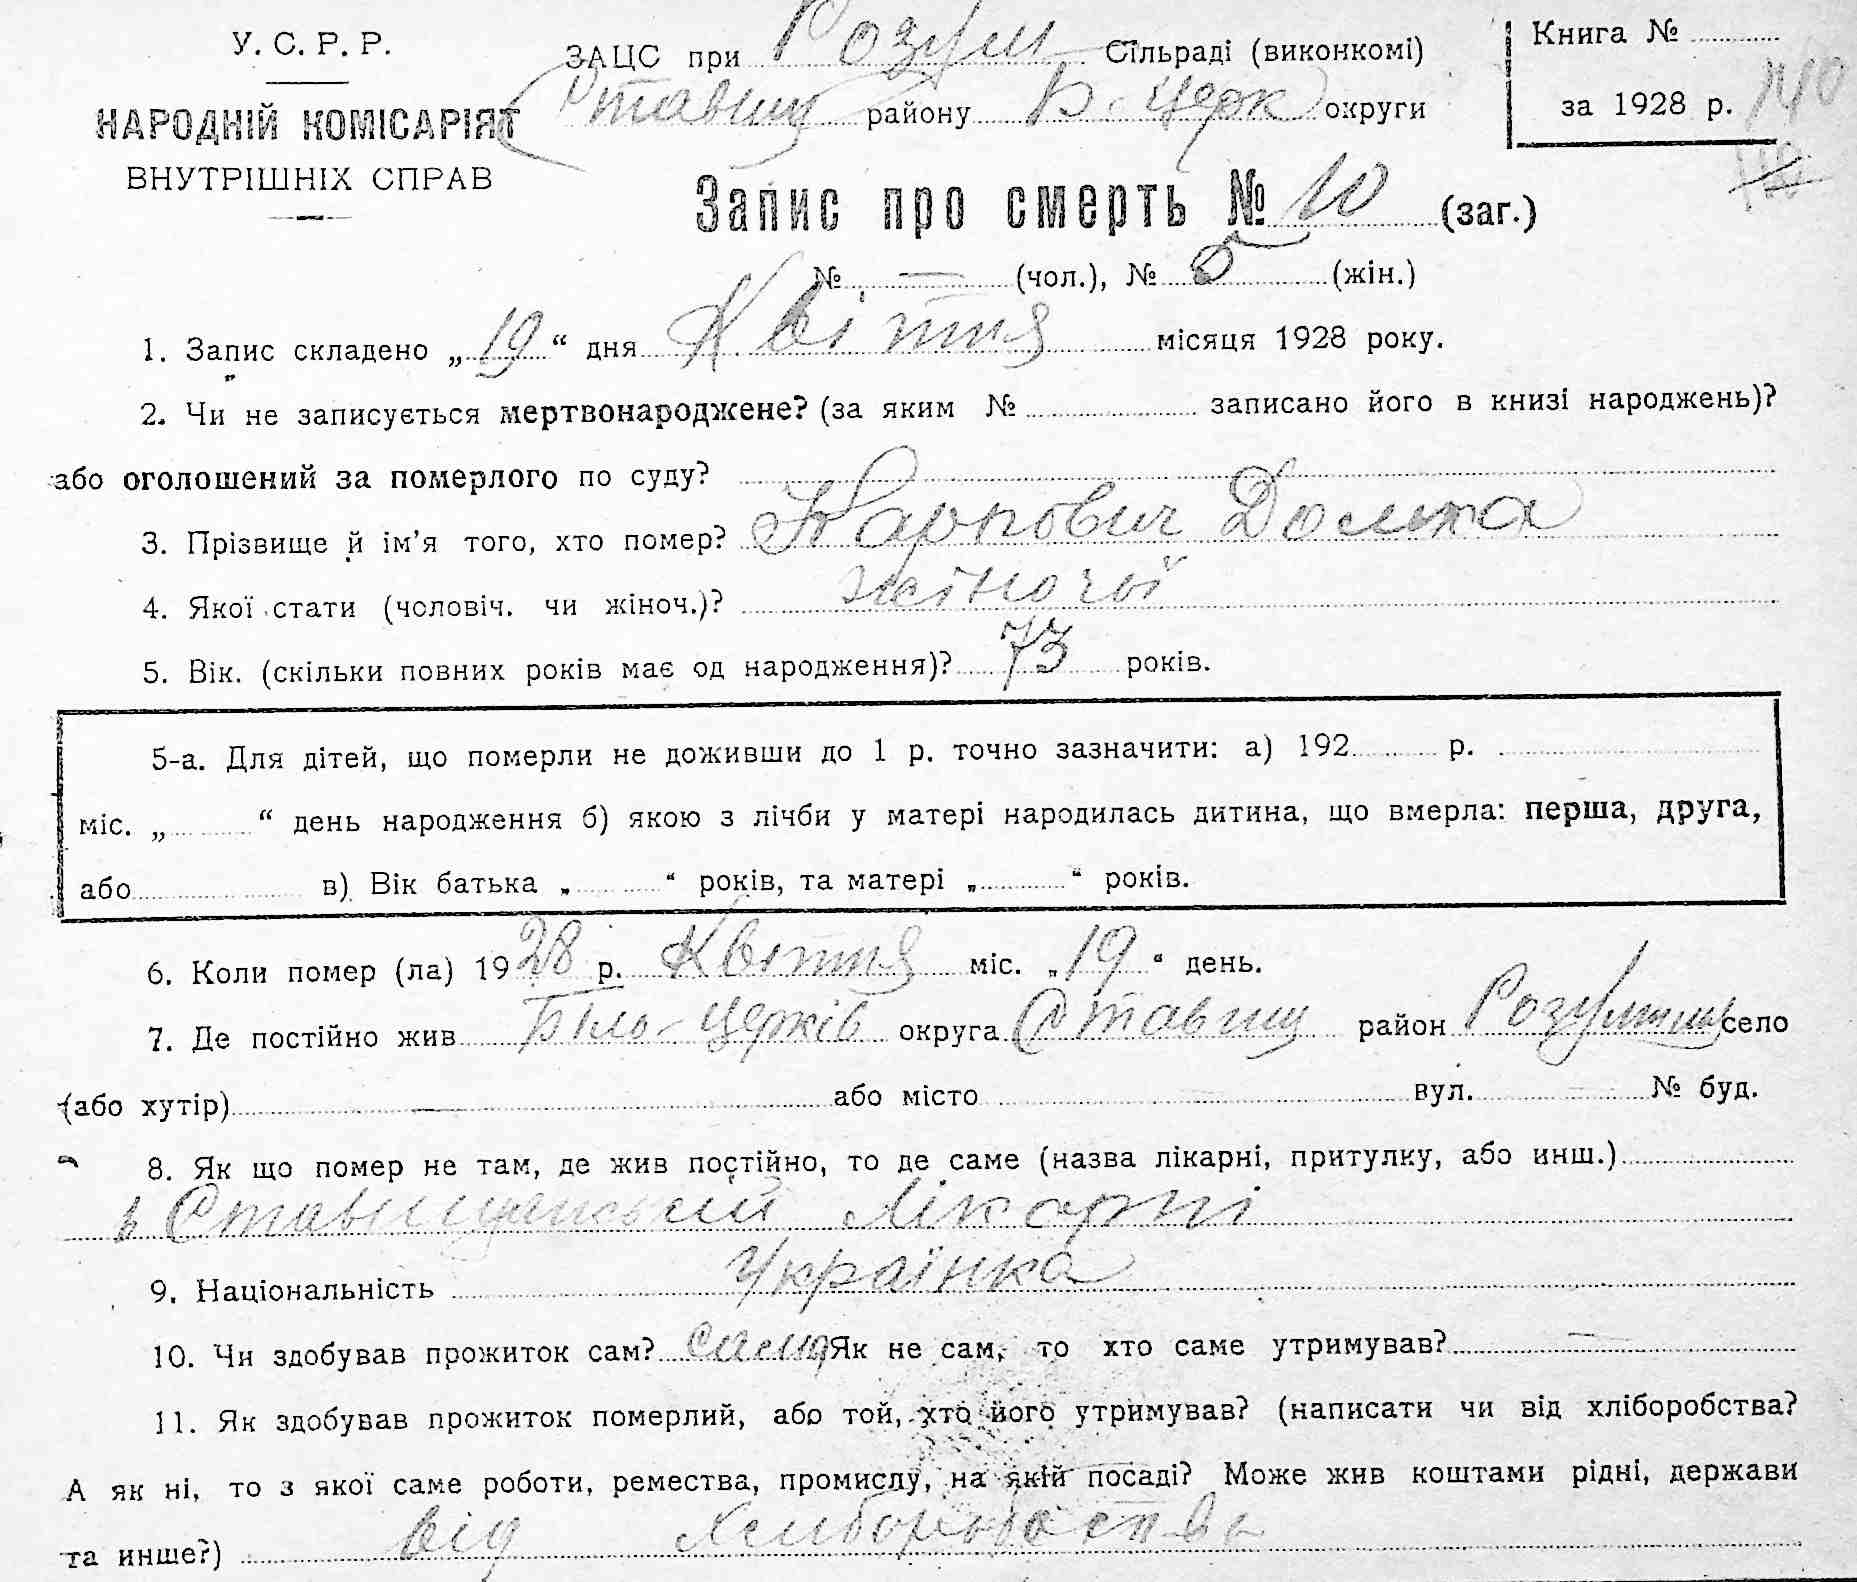 У. С. Р. Р.
НАРОДНІЙ КОМІСАРІЯТ
ВНУТРІШНІХ СПРАВ
ЗАЦС при Розум Сільраді (виконкомі)
Ставищ району Б-Церк округи
Книга №
за 1928 р. 140
Запис про смерть № 10 (заг.)
№ — (чол.), № 5 (жін.)
1. Запис складено „ 19 “ дня Квітня місяця 1928 року.
2. Чи не записується мертвонароджене? (за яким № записано його в книзі народжень)?
або оголошений за померлого по суду?
3. Прізвище й ім’я того, хто помер? Карпович Домка
4. Якої стати (чоловіч. чи жіноч.)? жіночої
5. Вік. (скільки повних років має од народження)? 73 років.
5-а. Для дітей, що померли не доживши до 1 р. точно зазначити: а) 192 р.
міс. „ “ день народження б) якою з лічби у матері народилась дитина, що вмерла: перша, друга,
або в) Вік батька „ “ років, та матері „ “ років.
6. Коли помер (ла) 1928 р. Квітня міс. „ 19 “ день.
7. Де постійно жив Біло-Церків округа Ставищ район село
(або хутір) — або місто — вул. — № буд.
8. Як що помер не там, де жив постійно, то де саме (назва лікарні, притулку, або инш.)
в Ставищенській лікарні
9. Національність Українка
10. Чи здобував прожиток сам? сама Як не сам, то хто саме утримував? —
11. Як здобував прожиток померлий, або той, хто його утримував? (написати чи від хліборобства?
А як ні, то з якої саме роботи, ремества, промислу, на якій посаді? Може жив коштами рідні, держави
та инше?) від